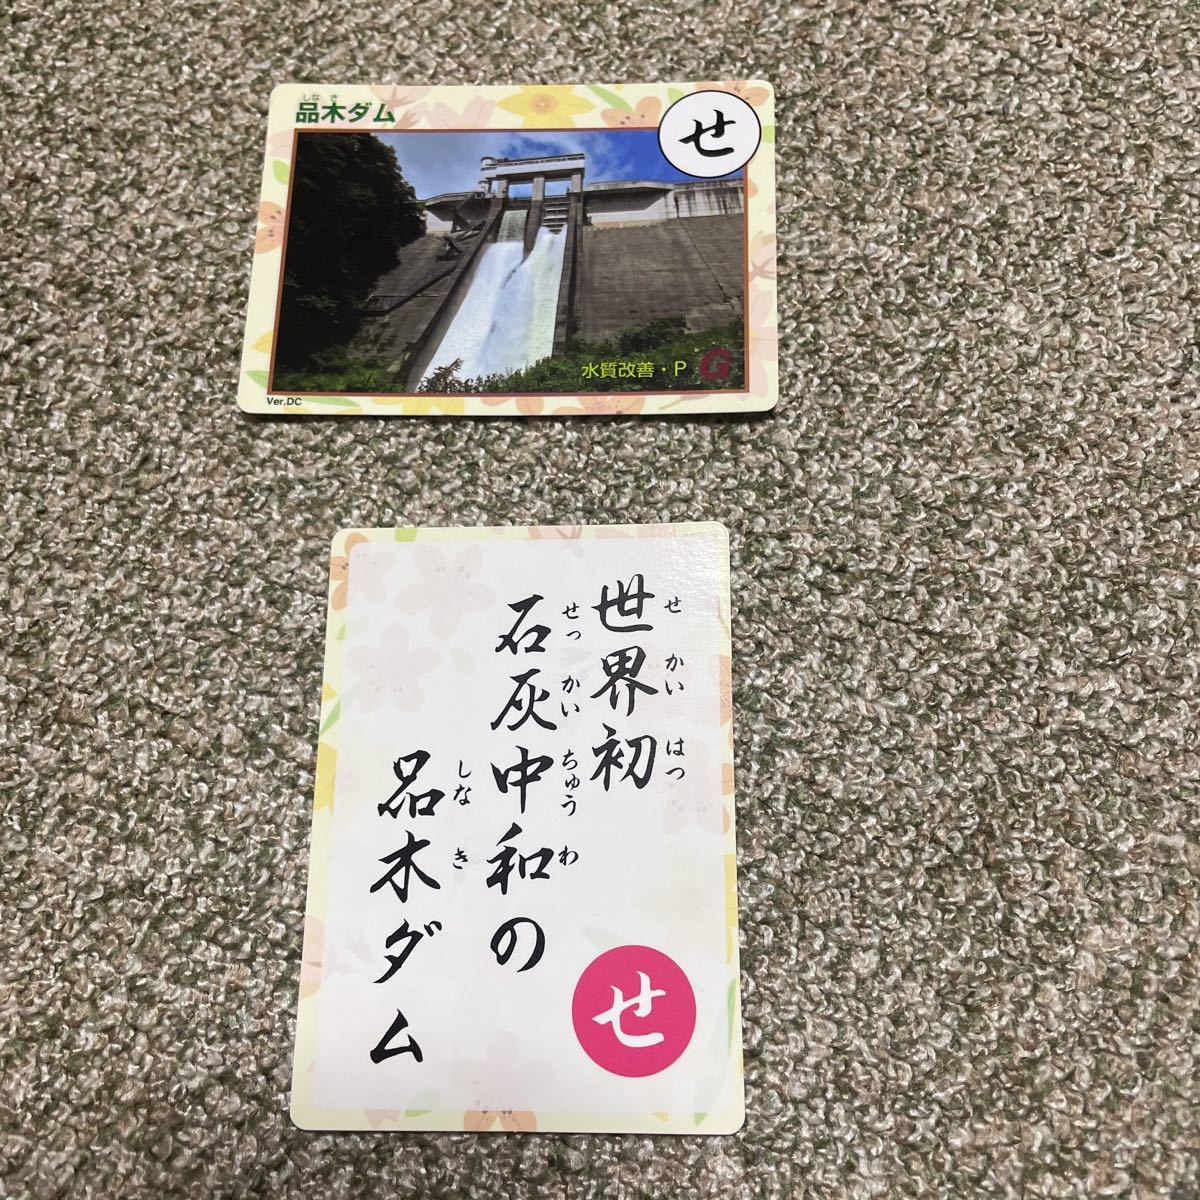 しなき
品木ダム
せ
水質改善・P G
Ver.DC
せかいはつ
世界初
せっかいちゅうわ
石灰中和の
しなき
品木ダム
せ